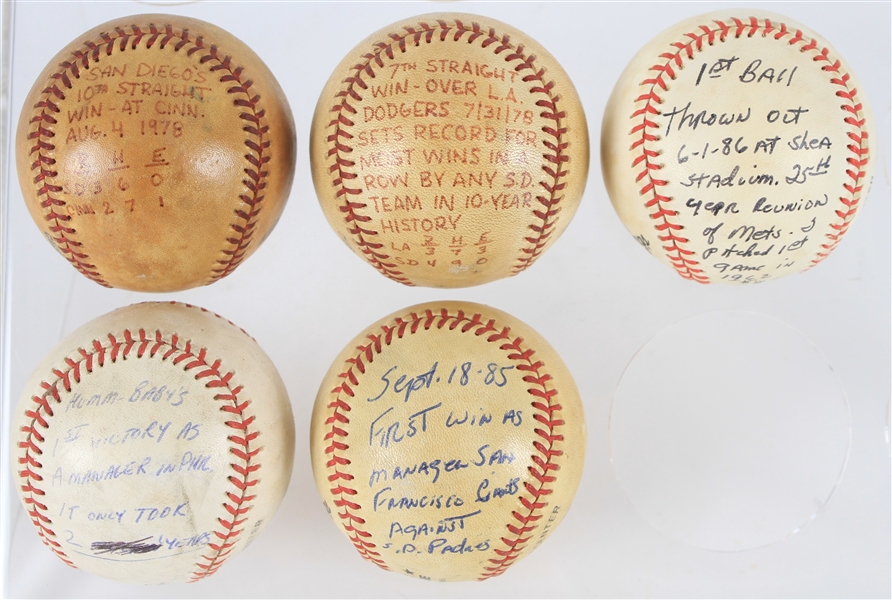 SAN DIEGO'S
10TH STRAIGHT
WIN-AT CINN.
AUG. 4 1978
R H E
SD 3 6 0
CINN 2 7 1
7TH STRAIGHT
WIN-OVER L.A.
DODGERS 7/31/78
SETS RECORD FOR
MOST WINS IN A
ROW BY ANY S.D.
TEAM IN 10-YEAR
HISTORY
R H E
LA 3 7 3
SD 4 9 0
1st Ball
Thrown Out
6-1-86 AT Shea
Stadium. 25th
year Reunion
of Mets. I
Pitched 1st
game in
1962
Humm-BABY'S
1ST VICTORY AS
A MANAGER IN PHIL.
IT ONLY TOOK
2 YEARS
Sept. 18-85
FIRST WIN AS
MANAGER SAN
FRANCISCO Giants
AGAINST
S.D. Padres